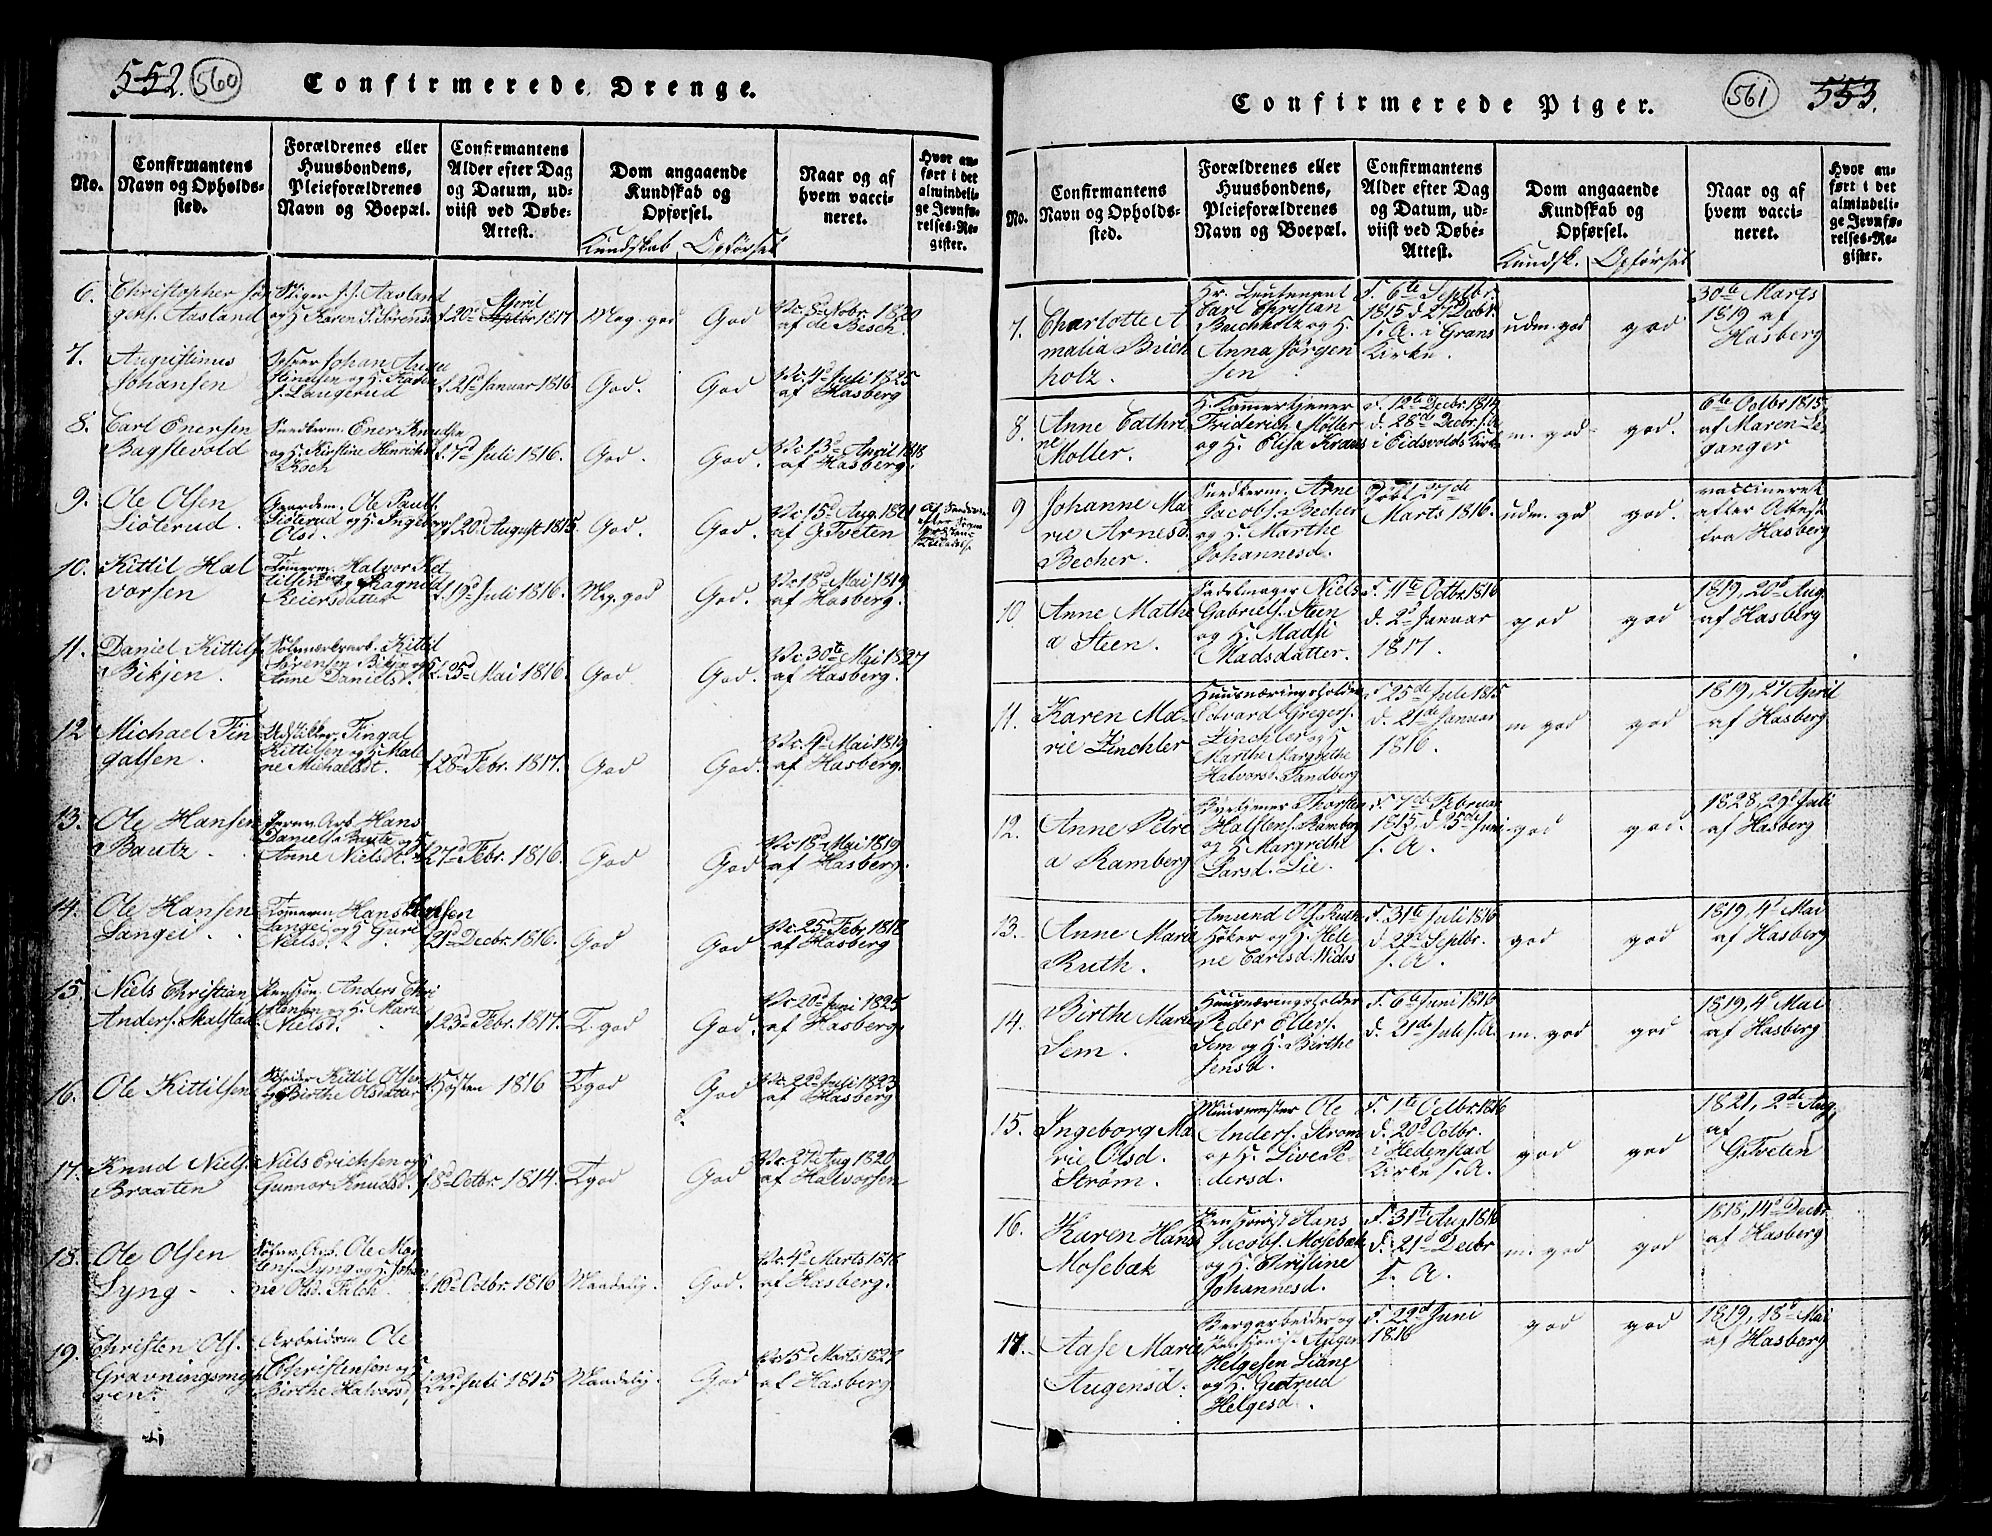 552. 560
Confirmerede Drenge.
No.
Confirmantens
Navn og Opholds-
sted.
Forældrenes eller
Huusbondens,
Pleieforældrenes
Navn og Boepæl.
Confirmantens
Alder efter Dag
og Datum, ud-
viist ved Døbe-
Attest.
Dom angaaende
Kundskab og
Opførsel.
Kundskab Opførsel
Naar og af
hvem vacci-
neret.
Hvor an-
ført i det
almindeli-
ge Jevnfø-
relses-Re-
gister.
6.
Christopher Sør
gens. Aasland
Aasland
og H. Karen
f. 20d April 1817
Meg. god
God
Vc. 8d Nobr. 1820
af de Besch.
7.
Augustinus
Johansen
Johan
f. Langerud
f. 21d Januar 1816
God.
God
Vc. 4d Juli 1825
af Hasberg
8.
Carl Enersen
Bagstevold
Snedkerm. Ener Knudsen
og H. Kirstine Henrichsd
Koch
f. 7d Juli 1816.
God.
God.
Vc. 13d April 1818
af Hasberg.
9.
Ole Olsen
Liøterud
Gaardm. Ole Pauls.
Liøterud og H. Ingeborg
Olsd.
f. 20d August 1815.
God.
God.
Vc. 15d Aug. 1821
af G. Tveten
10.
Kittil Hal
vorsen
Tømerm. Halvor Kit
tilsen og Ragnild
Reiersdatter
f. 19d Juli 1816.
Meg. god
God.
Vc. 18d Mai 1819
af Hasberg.
11.
Daniel Kittils.
Bikjen.
Sølvværksarb. Kittil
Sørensen Bikjen og H.
Anne Daniels.
f. 25d Mai 1816.
God
God.
Vc. 30te Mai 1827
af Hasberg.
12
Michael Fin
galsen.
Fingal
Kittilsen og H. Male
ne Michaelsdt.
f. 28d Febr. 1817.
God
God.
Vc. 4d Mai 1819
af Hasberg.
13.
Ole Hansen
Bautz.
Jernv. Arb. Hans
Daniels. Bautz og H.
Anne Nielsdt.
f. 27d Febr. 1816.
God
God
Vc. 18d Mai 1819
af Hasberg.
14.
Ole Hansen
Langei.
Tømerm. Hans Olufsen
Langei og H. Guri
Nielsd.
f. 21d Decbr. 1816.
God
God
Vc. 25d Febr. 1818
af Hasberg
15.
Niels Christian
Anders. Malstad
Pension. Anders Chri
stensen og H. Marie
Nielsd.
f. 23d Febr. 1817.
T. god
God.
Vc. 20d Juni 1825
af Hasberg.
16.
Ole Kittilsen
Kittil Olsen
og Birthe Olsdatter
Høsten 1816
T. god
God
Vc. 22d Juli 1823
af Hasberg
17.
Knud Niels.
Braaten
Niels Erichsen og
Gunnor Knudsd.
f. 8d Octbr. 1814.
T. god
God
Vc. 27d Aug 1820
af Halvorsen
18.
Ole Olsen
Lyng.
Sølvv. Arb. Ole Mor
tens. Lyng og H. Johan
ne Olsd. Falch.
f. 16d Octbr. 1816
Maadelig.
God.
Vc. 4d Marts 1818
af Hasberg.
19.
Christen Ols.
Gravningsmyh
ren.
Arbeidsm. Ole
Christensen og
Birthe Halvorsd.
f. 22d Juli 1815
Maadelig.
God
Vc. 15d Marts 1827
af Hasberg.
Confirmerede Piger.
561 553.
No.
Confirmantens
Navn og Opholds-
sted.
Forældrenes eller
Huusbondens,
Pleieforældrenes
Navn og Boepæl.
Confirmantens
Alder efter Dag
og Datum, ud-
viist ved Døbe-
Attest.
Dom angaaende
Kundskab og
Opførsel.
Kundsk. Opførsel
Naar og af
hvem vacci-
neret.
Hvor an-
ført i det
almindeli-
ge Jevnfø-
relses-Re-
gister.
7.
Charlotte A
malia Buch
holz.
Hr. Leutenant
Carl Christian
Buchholz og H.
Anna Jørgen
sen
F. 6te Septbr.
1815 d. 27 Decbr.
s. A. i Grans
Kirke.
udm. god
god
30te Marts
1819 af
Hasberg
8.
Anne Cathri
ne
Møller.
H. Kamertjener
Friderich Møller
og H. Elisa Kraus
F. 12te Decbr. 1814
d. 28de Decbr. s. A.
i Eidsvolds Kirke
m. god
god.
6te Octbr 1815
af Maren Le
ganger
9
Johanne Ma
rie Arnesd.
Becher.
Snedkerm. Arne
Jacobs. Becher
og H. Marthe
Johannesd.
Født 27de
Marts 1816.
udm. god
god.
vaccineret
efter Attest
fra Hasberg
10
Anne Mathe
a Steen.
Sadelmager Niels
Gabriels. Steen
og H. Madsi
Madsdatter.
F. 11te Octbr 1816
d. 2d Januar
1817.
god
god
1819, 20d Aug.
af Hasberg
11.
Karen Ma-
rie Linchler
Huusnæringsholder
Edvard Gregers.
Linchler og H.
Marthe Margrethe
Halvorsd. Tandberg
F. 25de Juli 1815
d. 21de Januar
1816.
m god
god
1819, 27 April
af Hasberg
12.
Anne Petre
a Ramberg
Byetjener Thorsten
Halstens. Ramberg
og H. Margrethe
Larsd. Lie.
F. 7de Februar
1815, d. 25de Juni
s. A.
god
god.
1828, 29d Juli
af Hasberg
13.
Anne Marie
Ruth.
Amund Ols. Ruth
Høker og H. Hele
ne Carlsd. Nidos
F. 31te Juli 1816
d. 22de Septbr.
s. A.
god
god
1819, 4d Mai
af Hasberg
14.
Birthe Marie
Sem.
Huusnæringsholder
Peder Ellefs.
Sem og H. Birthe
Jensd.
F. 6te Juni 1816
d. 21de Juli s. A.
m. god
god
1819, 4d Mai
af Hasberg
15.
Ingeborg Ma
rie Olsd.
Strøm.
Muurmester Ole
Anders. Strøm
og H. Live Pe-
dersd.
F. 1te Octbr. 1816
d. 20d Octbr.
i Hedenstad
Kirke s. A.
god
god
1821, 2de Aug.
af
G. Tveten
16.
Karen Hansd
Mosebæk
Pensionist Hans
Jacobs. Mosebæk
og H. Christine
Johannesd.
F. 31te Aug 1816
d. 21d Decbr
s. A.
m. god
god
1818, 14d Decbr.
af Hasberg
17.
Aase Marie
Augensd.
Bergarbeider og
Pensionist Augen
Helgesen Liane
og H. Gertrud
Helgesd.
F. 22d Juni
1816
god
god
1819, 18d Mai
af Hasberg